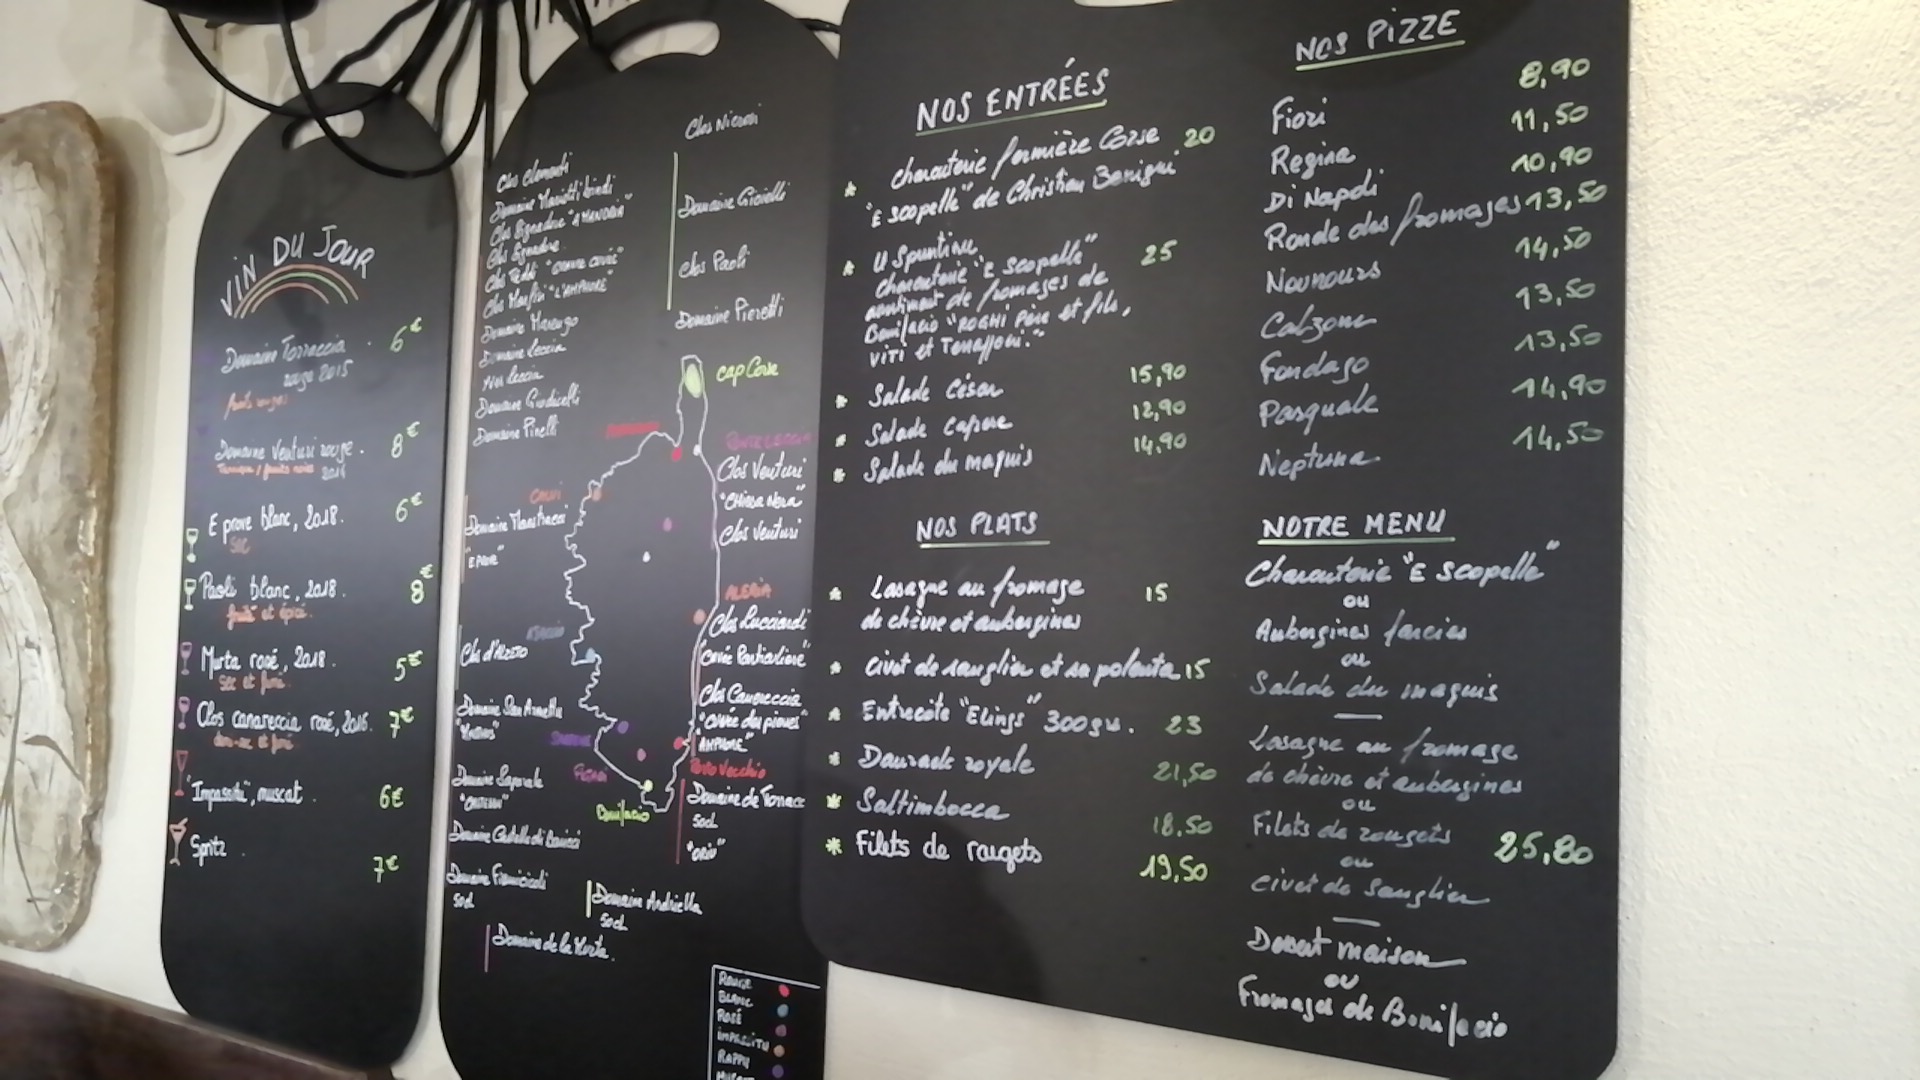 VIN DU JOUR
Domaine Torraccia . 6€
rouge 2015
fruits rouges
Domaine Venturi rouge. 8€
fruits noirs 2014
E prove blanc, 2018. 6€
sec
Paoli blanc, 2018. 8€
fruité et épicé
Murta rosé, 2018. 5€
Sec et fin
Clos canareccia rosé, 2016. 7€
demi-sec et fin
"Impassitu", muscat. 6€
Spritz. 7€
Clos Nicrosi
Clos Clementi
Domaine
Clos Signadore "A MANDRIA"
Clos Signadore
Clos Teddi
"L'AMPHORE"
Domaine Marengo
Domaine Leccia
Yves Leccia
Domaine Giudicelli
Domaine Pinelli
Domaine Gioielli
Clos Paoli
Domaine Pieretti
Cap Corse
CALVI
Domaine Maestracci
"E PROVE"
PONTE LECCIA
Clos Venturi
"CHIESA NERA"
Clos Venturi
ALERIA
Clos Lucciardi
"Cuvée Particulière"
Clos Canareccia
"Cuvée des pieves"
"AMPHORE"
AJACCIO
Clos d'Alzeto
Domaine San Armettu
"MYRTUS"
SARTENE
FIGARI
Porto Vecchio
Domaine de Torracc
50cl
"ORIU"
Bonifacio
Domaine Saparale
"CASTEDDU"
Domaine
50cl
Domaine Andriella
50cl
Domaine de la Murta.
ROUGE
BLANC
ROSÉ
IMPASSITU
RAPPU
NOS ENTRÉES
* charcuterie fermière Corse 20
"E scopelle" de Christian Benigni.
* U Spuntinu 25
charcuterie "E scopelle"
assortiment de fromages de
Bonifacio "ROGHI Père et fils,
VITI et Tenaffoni."
* Salade César 15,90
* Salade capone 12,90
* Salade du maquis 14,90
NOS PLATS
* Lasagne au fromage 15
de chèvre et aubergines
* Civet de sanglier et sa polenta 15
* Entrecôte "Elings" 300grs. 23
* Daurade royale 21,50
* Saltimbocca 18.50
* Filets de rougets 19,50
NOS PIZZE
Fiori 8,90
Regina 11,50
Di Napoli 10,90
Ronde des fromages 13,50
Nounours 14,50
Calzone 13,50
Fondago 13,50
Pasquale 14,90
Neptuna 14,50
NOTRE MENU
Charcuterie "E scopelle"
ou
Aubergines farcies
ou
Salade du maquis
Lasagne au fromage
de chèvre et aubergines
ou
Filets de rougets 25,80
ou
civet de sanglier
Dessert maison
ou
Fromages de Bonifacio